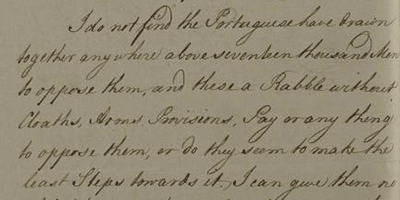 I do not find the Portuguese have drawn
together any where above seventeen thousand Men
to oppose them, and these a Rabble without
Cloaths, Arms, Provisions, Pay or any thing
to oppose them, or do they seem to make the
least Steps towards it, I can give them no